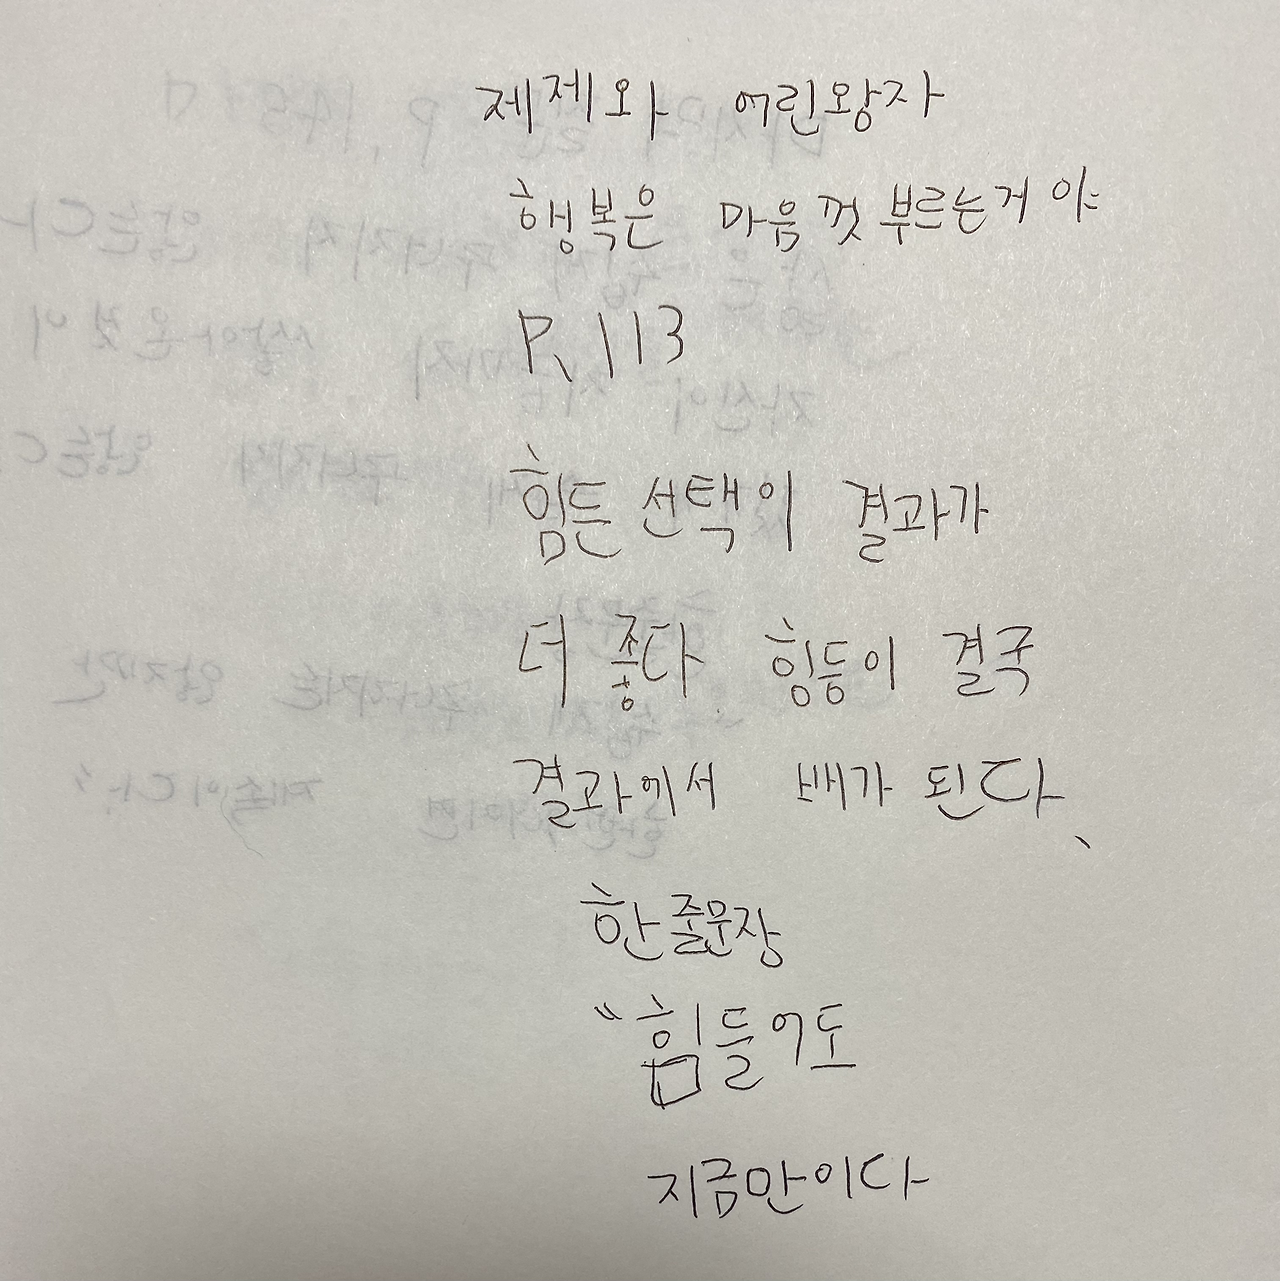 제제와 어린왕자
행복은 마음껏 부르는거야
P. 113
힘든 선택이 결과가
더 좋다. 힘듬이 결국
결과에서 배가 된다.
한줄문장
"힘들어도
지금만이다